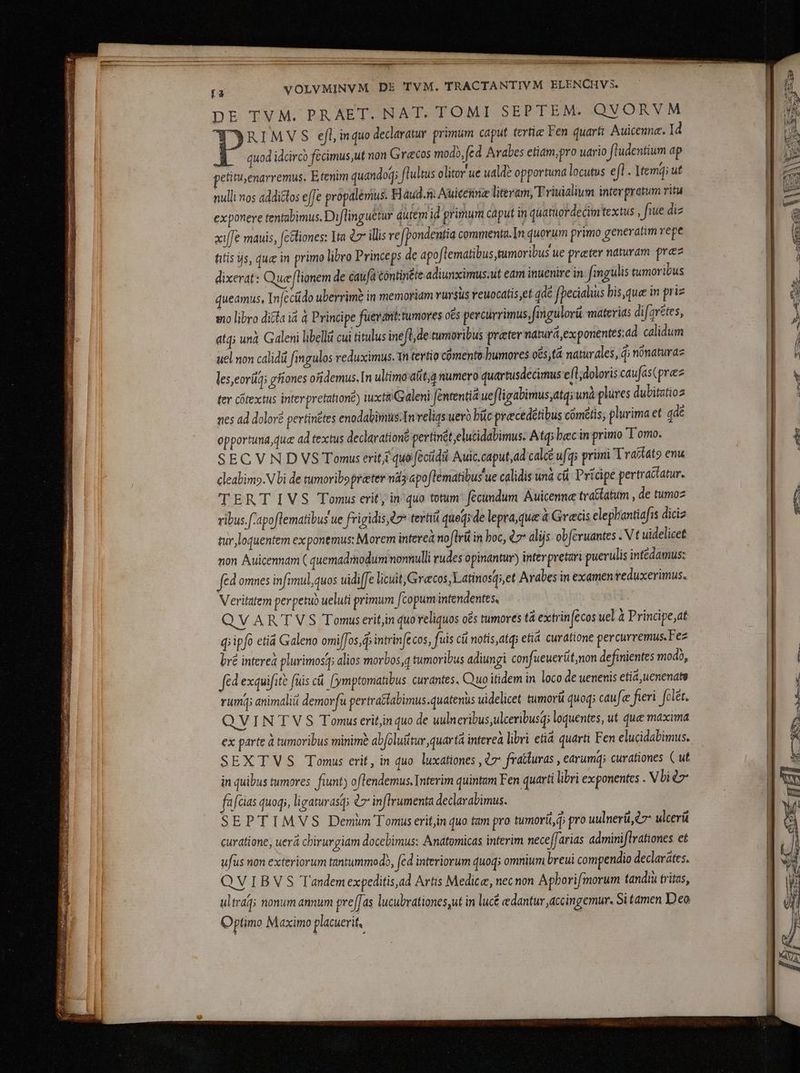 12 VOLVMINVM DE TVM. TRACTANTIVM ELENCHVS.
DE TVM. PRAET. NAT. TOMI SEPTEM. QVORVM
PRIMVS eſt, in quo declaratur primum caput tertiæ Fen quarti Auicennæ. Id
quod idcirco fecimus, ut non Græcos modò, ſed Arabes etiam, pro uario ſtudentium ap
petitu, enarremus. Etenim quandoq; ſtultus olitor ue ualde opportuna locutus eſt. Itemq́; ut
nulli nos addictos eſſe propalemus. Haud.n. Auicennæ literam, Triuialium interpretum ritu
exponere tentabimus. Diſtinguetur autem id primum caput in quatuordecim textus, ſiue di=
xiſſe mauis, ſectiones: Ita & illis reſpondentia commenta. In quorum primo generatim repe
titis ijs, quæ in primo libro Princeps de apoſtematibus, tumoribus ue præter naturam præ=
dixerat: Quæſtionem de cauſa continẽte adiunximus. ut eam inuenire in ſingulis tumoribus
queamus. In ſecũdo uberrimè in memoriam rursùs reuocatis, et ꝗdẽ ſpecialius his, quæ in pri=
mo libro dicta iã à Principe fuerant: tumores oẽs percurrimus, ſingulorũ materias diſqrẽtes,
atq; unà Galeni libellũ cui titulus ineſt, de tumoribus præter naturã, exponentes: ad calidum
uel non calidũ ſingulos reduximus. In tertio cõmento humores oẽs, tã naturales, q̃; nõnatura=
les, eorũq; gñones oñdemus. In ultimo aũt, q numero quartusdecimus eſt, doloris cauſas (præ=
ter cõtextus interpretationẽ) iuxta Galeni ſententiã ueſtigabimus, atq; unà plures dubitatio=
nes ad dolorẽ pertinẽtes enodabimus. In reliqs uerò huic præcedẽtibus cõmẽtis, plurima et ꝗdẽ
opportuna, quæ ad textus declarationẽ pertinẽt, elucidabimus. Atq; hæc in primo Tomo.
SECVNDVS Tomus erit, ĩ quo ſecũdũ Auic. caput, ad calcẽ uſq; primi Tractatꝰ enu
cleabimꝰ. Vbi de tumoribꝰ præter nãʒ apoſtematibus ue calidis unà cũ Prĩcipe pertractatur.
TERTIVS Tomus erit, in quo totum ſecundum Auicennæ tractatum, de tumo=
ribus. ſ. apoſtematibus ue frigidis, & tertiũ quoq; de lepra, quæ à Græcis elephantiaſis dici=
tur, loquentem exponemus: Morem intereà noſtrũ in hoc, & alijs obſeruantes. Vt uidelicet
non Auicennam (quemadmodum nonnulli rudes opinantur) interpretari puerulis intẽdamus:
ſed omnes inſimul, quos uidiſſe licuit, Græcos, Latinosq́;, et Arabes in examen reduxerimus.
Veritatem perpetuò ueluti primum ſcopum intendentes.
QVARTVS Tomus erit, in quo reliquos oẽs tumores tã extrinſecos uel à Principe, at
q; ipſo etiã Galeno omiſſos, q̃; intrinſecos, ſuis cũ notis, atq; etiã curatione percurremus. Fe=
brẽ intereà plurimosq́; alios morbos, q tumoribus adiungi conſueuerũt, non definientes modò,
ſed exquiſitè ſuis cũ ſymptomatibus curantes. Quo itidem in loco de uenenis etiã, uenenato
rumq́; animaliũ demorſu pertractabimus. quatenùs uidelicet tumorũ quoq; cauſæ fieri ſolẽt.
QVINTVS Tomus erit, in quo de uulneribus, ulceribusq́; loquentes, ut quæ maxima
ex parte à tumoribus minimè abſoluũtur, quartã intereà libri etiã quarti Fen elucidabimus.
SEXTVS Tomus erit, in quo luxationes, & fracturas, earumq́; curationes (ut
in quibus tumores fiunt) oſtendemus. Interim quintam Fen quarti libri exponentes. Vbi &
faſcias quoq;, ligaturasq́; & inſtrumenta declarabimus.
SEPTIMVS Demùm Tomus erit, in quo tam pro tumorũ, q̃; pro uulnerũ, & ulcerũ
curatione, uerã chirurgiam docebimus: Anatomicas interim neceſſarias adminiſtrationes et
uſus non exteriorum tantummodò, ſed interiorum quoq; omnium breui compendio declarãtes.
QVIBVS Tandem expeditis, ad Artis Medicæ, necnon Aphoriſmorum tandiu tritas,
ultraq́; nonum annum preſſas lucubrationes, ut in lucẽ ædantur, accingemur. Si tamen Deo
Optimo Maximo placuerit.